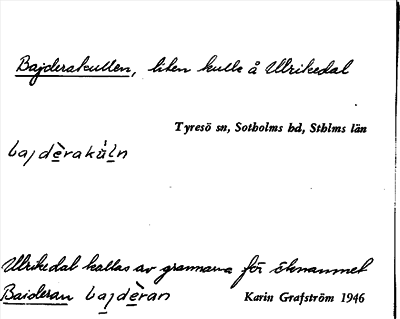 Bajderakullen, liten kulle å Ulrikedal
Tyresö sn, Sotholms hd, Sthlms län
bajdèrakúln
Ulrikedal kallas av grannarna för öknamnet
Baideran bajdèran Karin Grafström 1946